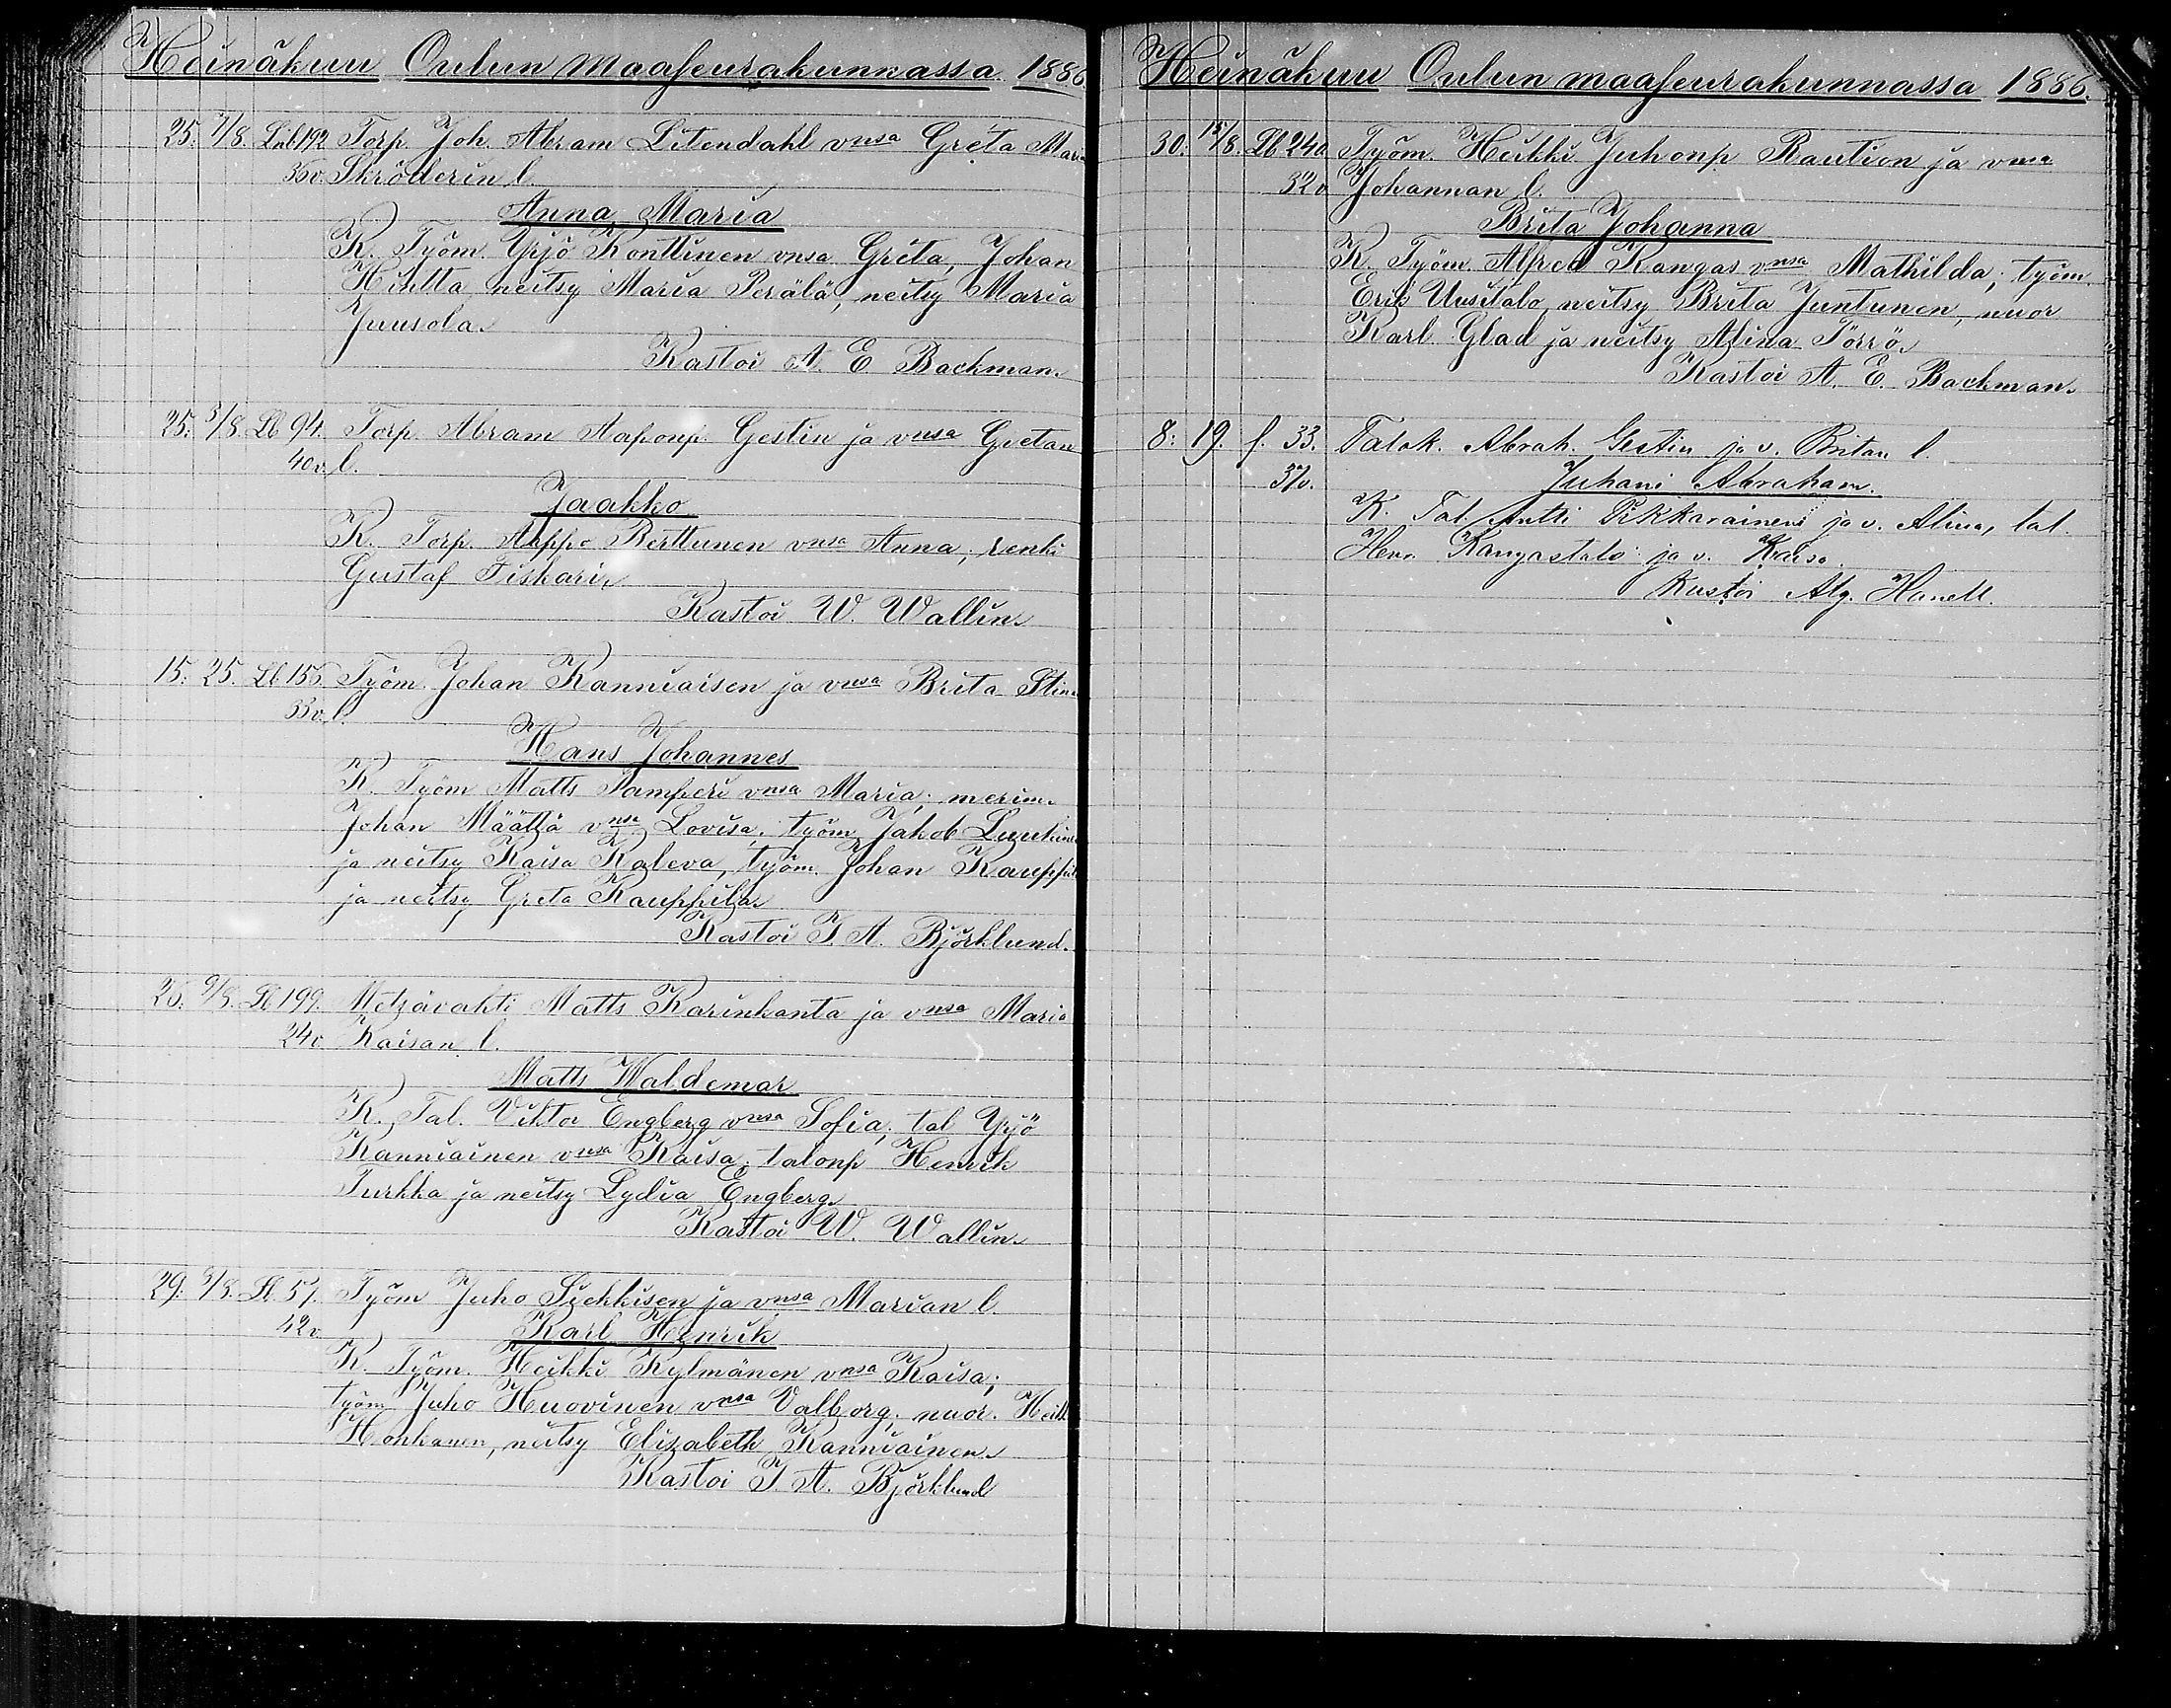 Heinäkuu Oulun maaseurakunnassa 1886.
25. 7/8. Lb 192 Torp. Joh. Abram Litendahl vnsa Greta Maria
35 v. Skröderin l.
Anna Maria
K. Työm. Yrjö Konttinen vnsa Greta, Johan
Hintta neitsy Maria Perälä, neitsy Maria
Juusola.
Kastoi A. E. Backman.
25. 3/8. Lb 94. Torp. Abram Aaponp. Gestin ja vnsa Gretan
40 v. l.
Jaakko
K. Torp. Aappo Berttunen vnsa Anna; renki
Gustaf Fiskari.
Kastoi W. Wallin.
15. 25. Lb 156. Työm Johan Kanniaisen ja vnsa Brita Stina
33 v. l.
Hans Johannes
K. Työm Matts Pamperi vnsa Maria; merim.
Johan Määttä vnsa Lovisa; työm Jakob
ja neitsy Kaisa Kaleva, työm. Johan Kauppila
ja neitsy Greta Kauppila.
Kastoi J. A. Björklund.
26. 9/8. Lb 199. Metzävahti Matts Karinkanta ja vnsa Maria
24 v. Kaisan l.
Matts Waldemar
K. Tal. Viktor Engberg vnsa Sofia; tal Yrjö
Kanniainen vnsa Kaisa; talonp Henrik
Turkka ja neitsy Lydia Engberg.
Kastoi W. Wallin.
29. 8/8. Lb 57. Työm Juho Siekkisen ja vnsa Marian l.
42 v. Karl Henrik
K. Työm. Heikki Kylmänen vnsa Kaisa;
työm Juho Huovinen vnsa Valborg; nuor. Heikk
Honkanen, neitsy Elizabeth Kanniainen.
Kastoi J. A. Björklund
Heinäkuu Oulun maaseurakunnassa 1886.
30. 15/8. Lb 240. Työm. Heikki Juhonp Raution ja vnsa
32 v. Johannan l.
Brita Johanna
K. Työm. Alfred Kangas vnsa Mathilda; työm.
Erik Uusitalo, neitsy Brita Juntunen, nuor
Karl Glad ja neitsy Alina Törrö.
Kastoi A. E. Backman.
8. 19. f. 33. Talok. Abrah. Gestin ja v. Britan l.
37 v. Juhani Abraham.
K. Tal. Antti Pikkarainen ja v. Alina, tal.
Henr. Kangastalo ja v. Kaisa.
Kastoi Alg. Hanell.